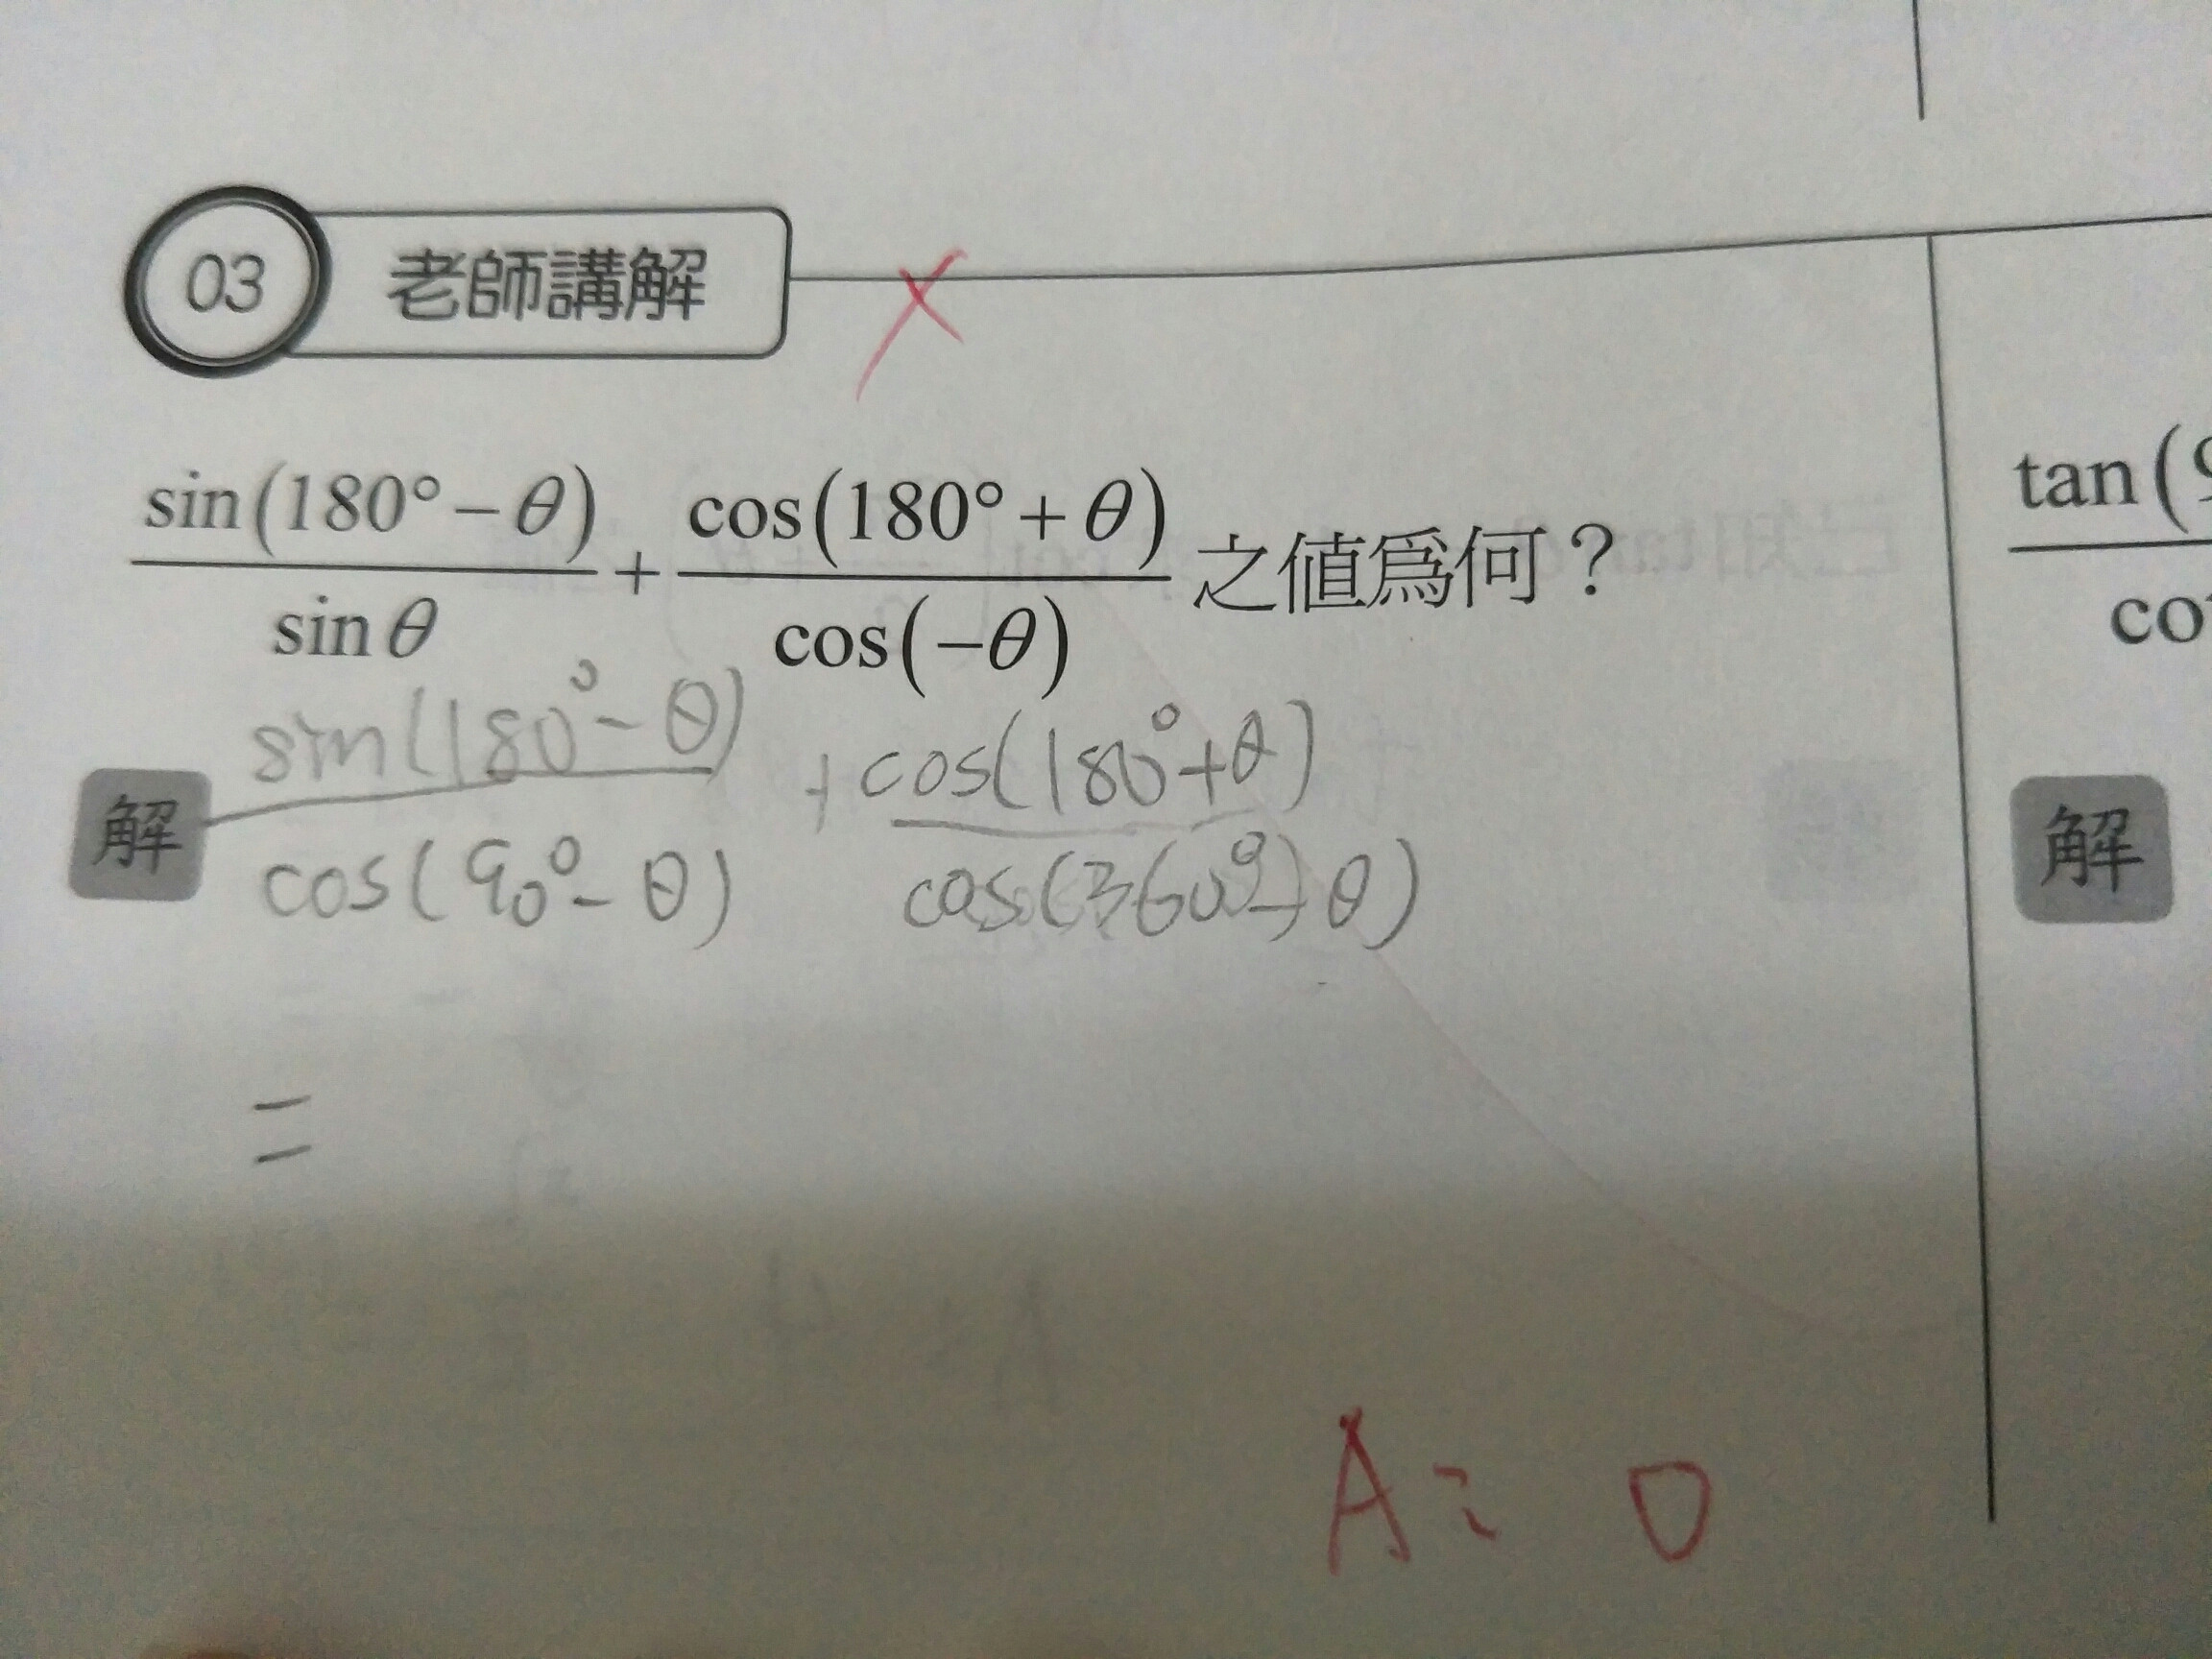 03 老師講解
×
sin(180°−θ)/sinθ + cos(180°+θ)/cos(−θ) 之值爲何？
tan(9
co
解 sin(180°−θ)/cos(90°−θ) + cos(180°+θ)/cos(360°−θ)
解
=
A: 0